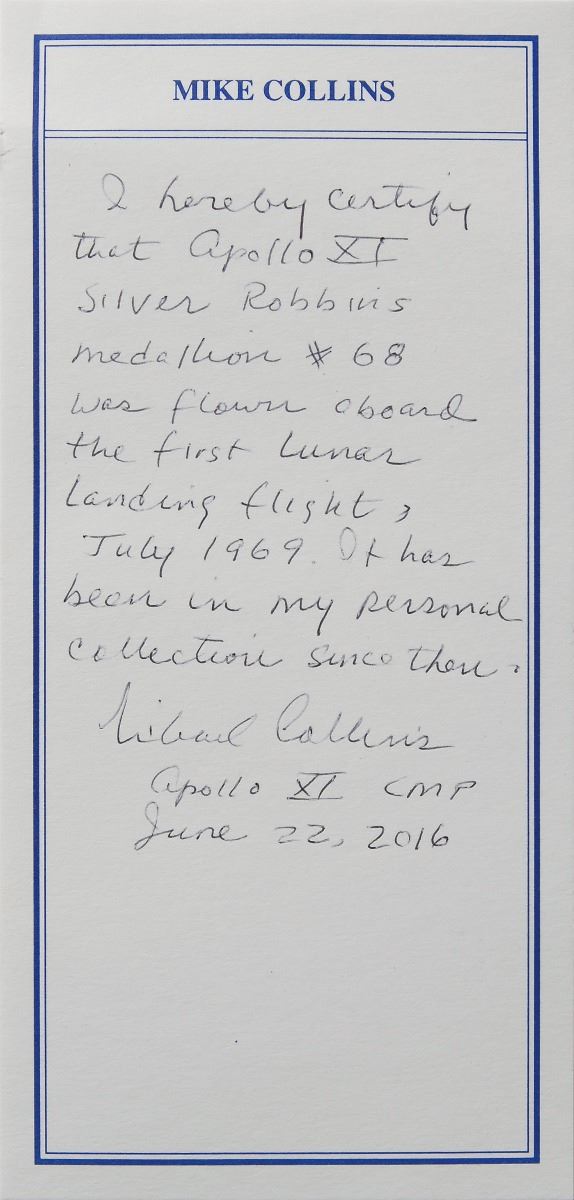 MIKE COLLINS
I hereby certify
that Apollo XI
Silver Robbins
medallion # 68
was flown aboard
the first lunar
landing flight,
July 1969. It has
been in my personal
collection since then.
Michael Collins
Apollo XI CMP
June 22, 2016